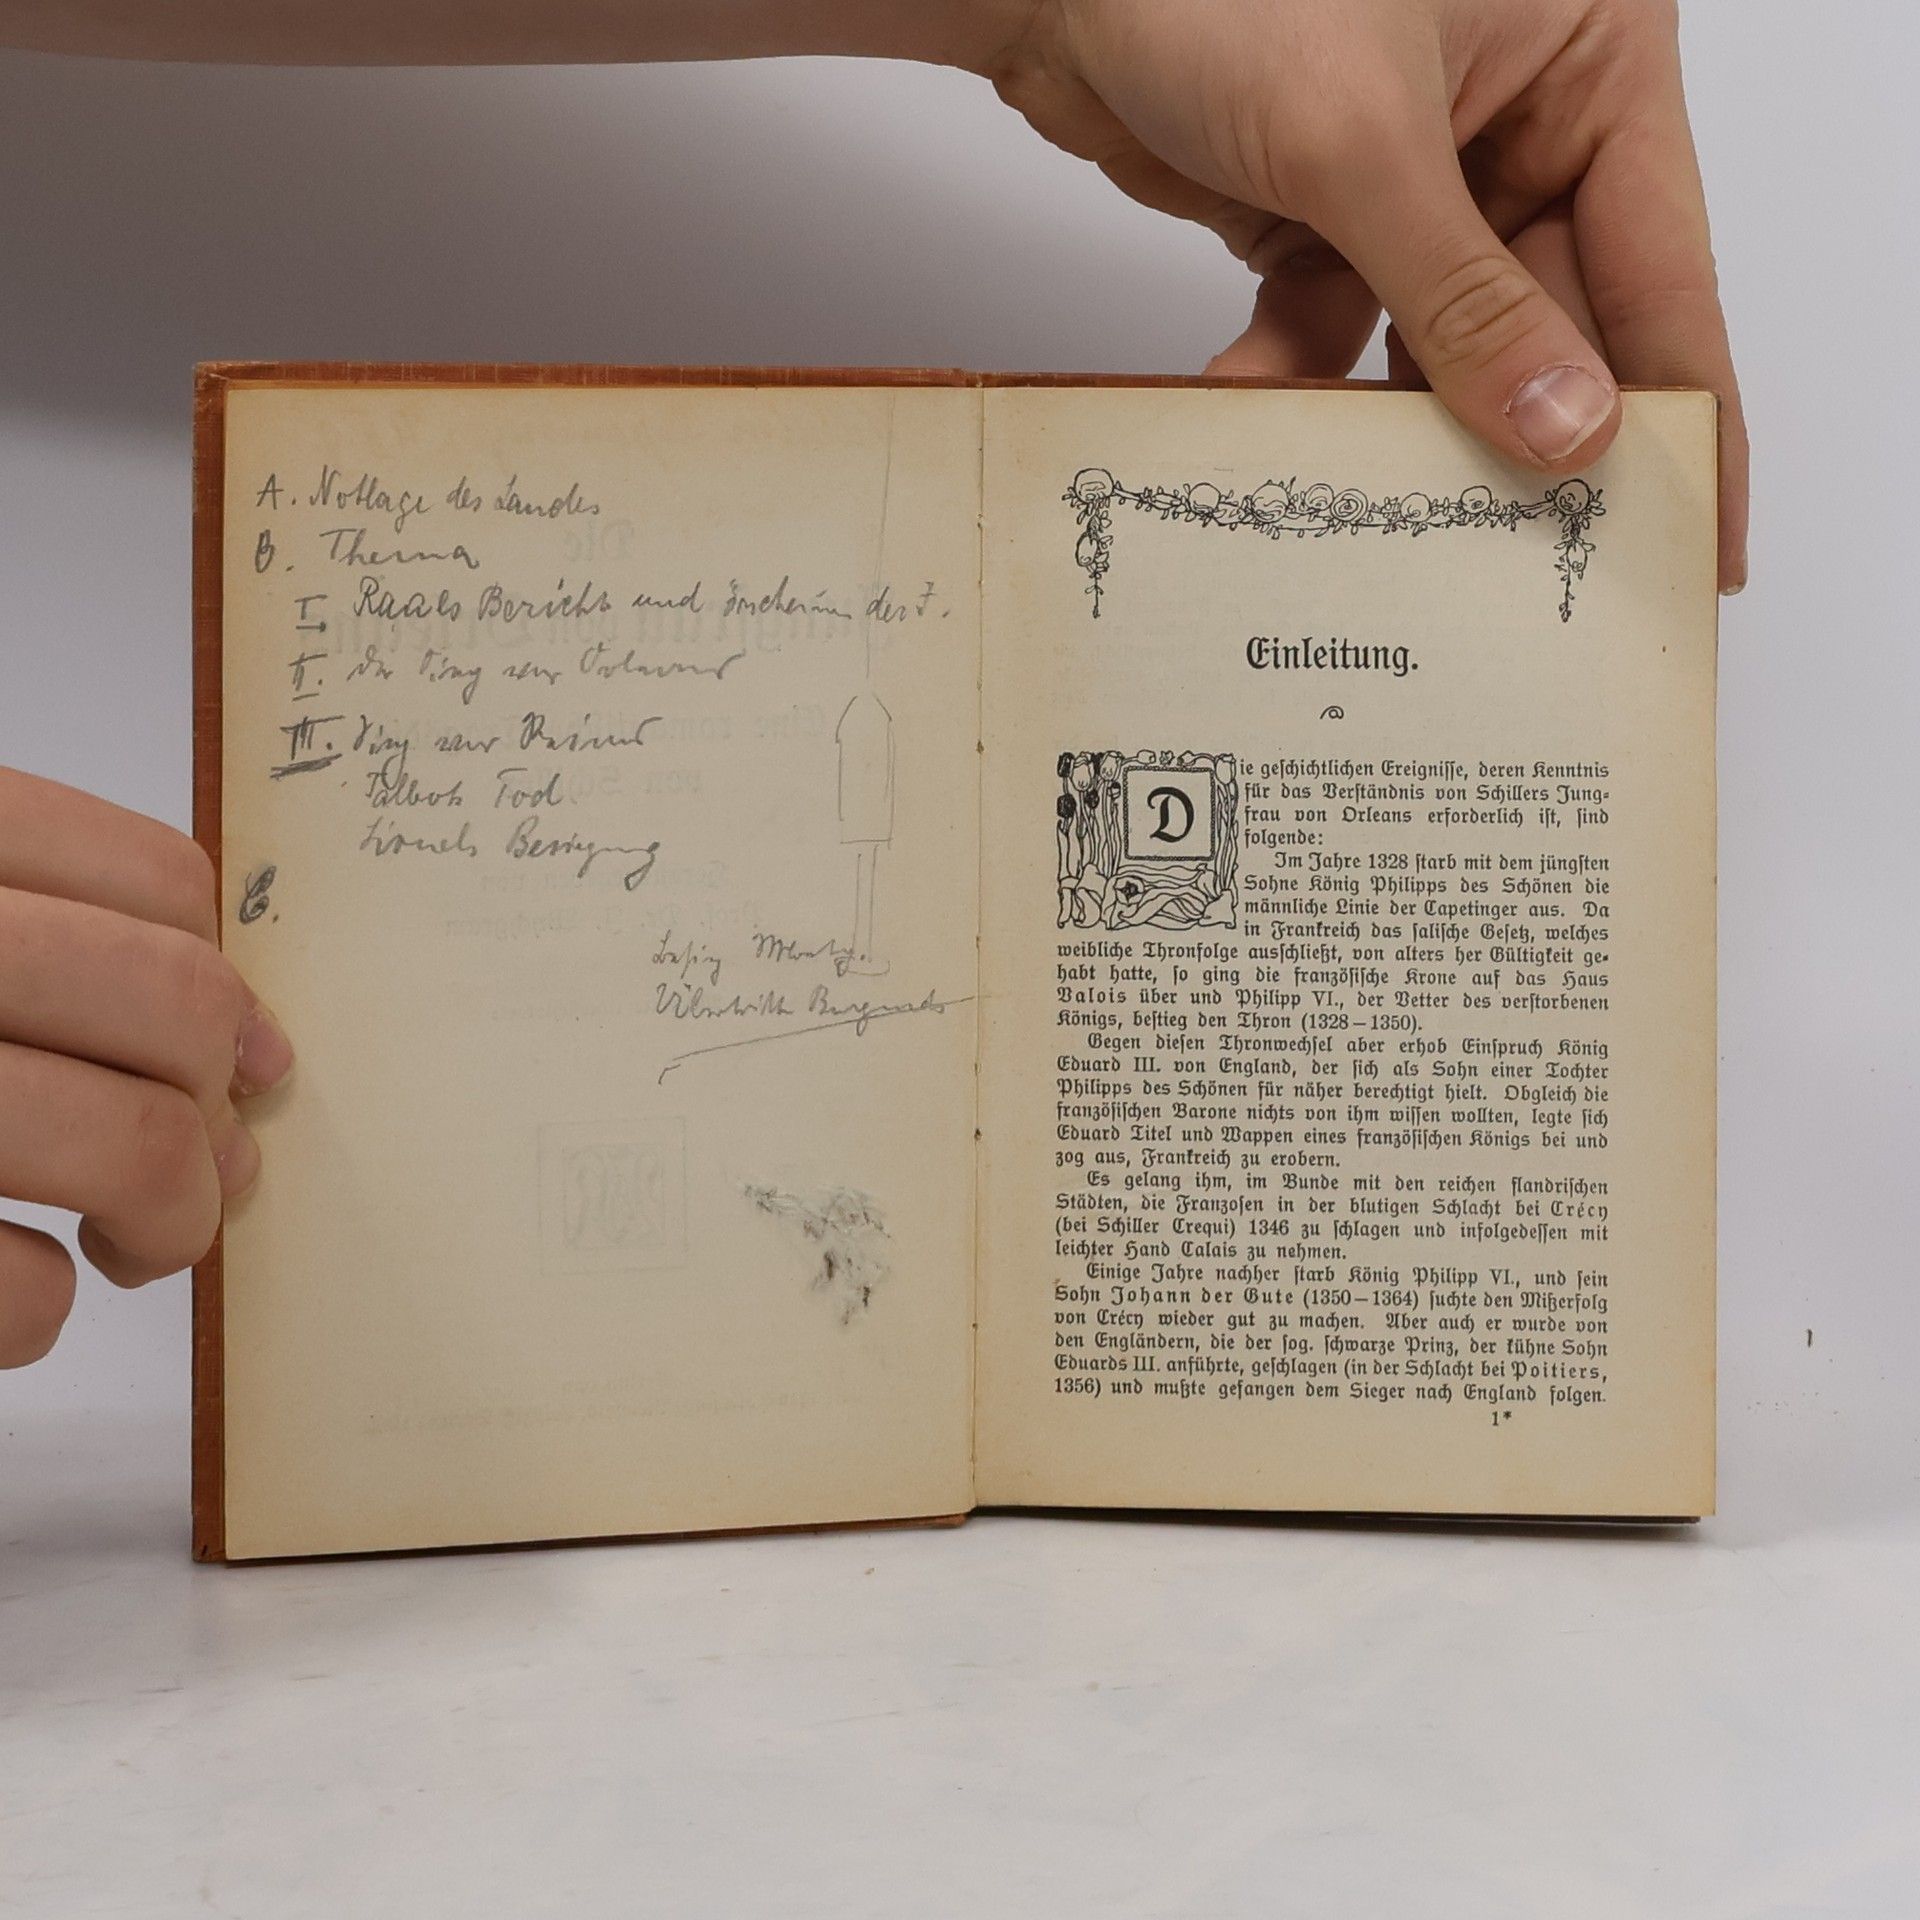 A. Notlage des Landes
B. Thema
I. Raouls Bericht und der J.
II. Der Sieg vor Orleans
III. Sieg vor Reims
Talbots Tod
Lionels Besiegung
C.
Montg.
Übertritt Burgunds
Einleitung.
Die geschichtlichen Ereignisse, deren Kenntnis
für das Verständnis von Schillers Jung-
frau von Orleans erforderlich ist, sind
folgende:
Im Jahre 1328 starb mit dem jüngsten
Sohne König Philipps des Schönen die
männliche Linie der Capetinger aus. Da
in Frankreich das salische Gesetz, welches
weibliche Thronfolge ausschließt, von alters her Gültigkeit ge-
habt hatte, so ging die französische Krone auf das Haus
Valois über und Philipp VI., der Vetter des verstorbenen
Königs, bestieg den Thron (1328–1350).
Gegen diesen Thronwechsel aber erhob Einspruch König
Eduard III. von England, der sich als Sohn einer Tochter
Philipps des Schönen für näher berechtigt hielt. Obgleich die
französischen Barone nichts von ihm wissen wollten, legte sich
Eduard Titel und Wappen eines französischen Königs bei und
zog aus, Frankreich zu erobern.
Es gelang ihm, im Bunde mit den reichen flandrischen
Städten, die Franzosen in der blutigen Schlacht bei Crécy
(bei Schiller Crequi) 1346 zu schlagen und infolgedessen mit
leichter Hand Calais zu nehmen.
Einige Jahre nachher starb König Philipp VI., und sein
Sohn Johann der Gute (1350–1364) suchte den Mißerfolg
von Crécy wieder gut zu machen. Aber auch er wurde von
den Engländern, die der sog. schwarze Prinz, der kühne Sohn
Eduards III. anführte, geschlagen (in der Schlacht bei Poitiers,
1356) und mußte gefangen dem Sieger nach England folgen.
1*